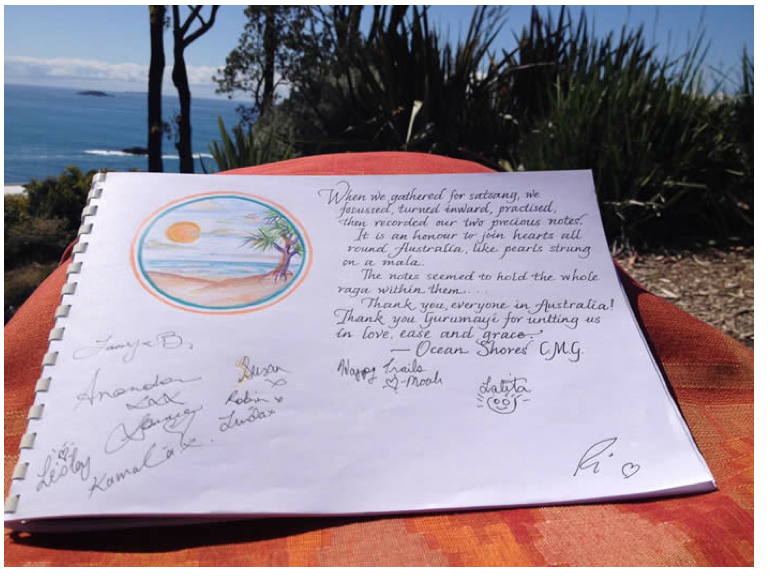 When we gathered for satsang, we
focussed, turned inward, practised,
then recorded our two precious notes!
It is an honour to join hearts all
round Australia, like pearls strung
on a mala.
The notes seemed to hold the whole
raga within them.....
Thank you, everyone in Australia!
Thank you Gurumayi for uniting us
in love, ease and grace.
— Ocean Shores C.M.G.
Happy Trails
Lalita
Susan
x
Robin x
Linda x
Anandan
xxx
Lesley
Kamala x